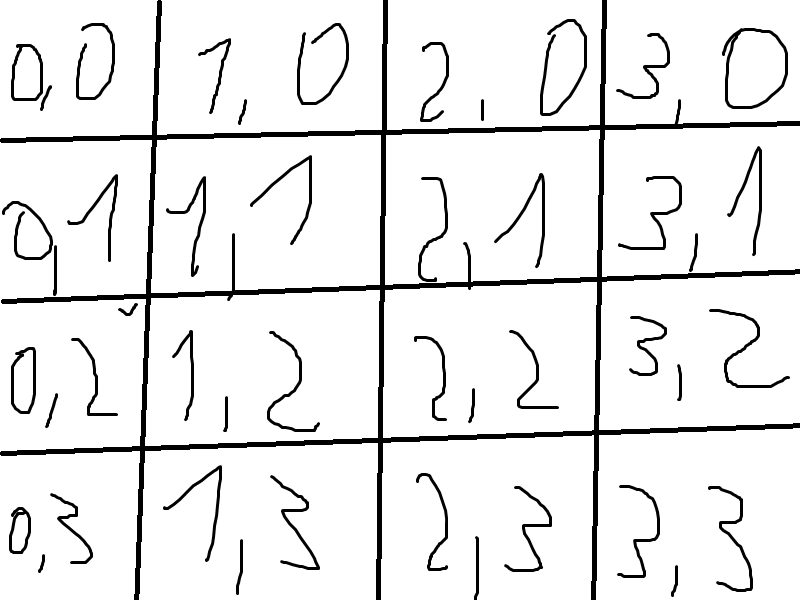 0,0 1,0 2,0 3,0
0,1 1,1 2,1 3,1
0,2 1,2 2,2 3,2
0,3 1,3 2,3 3,3